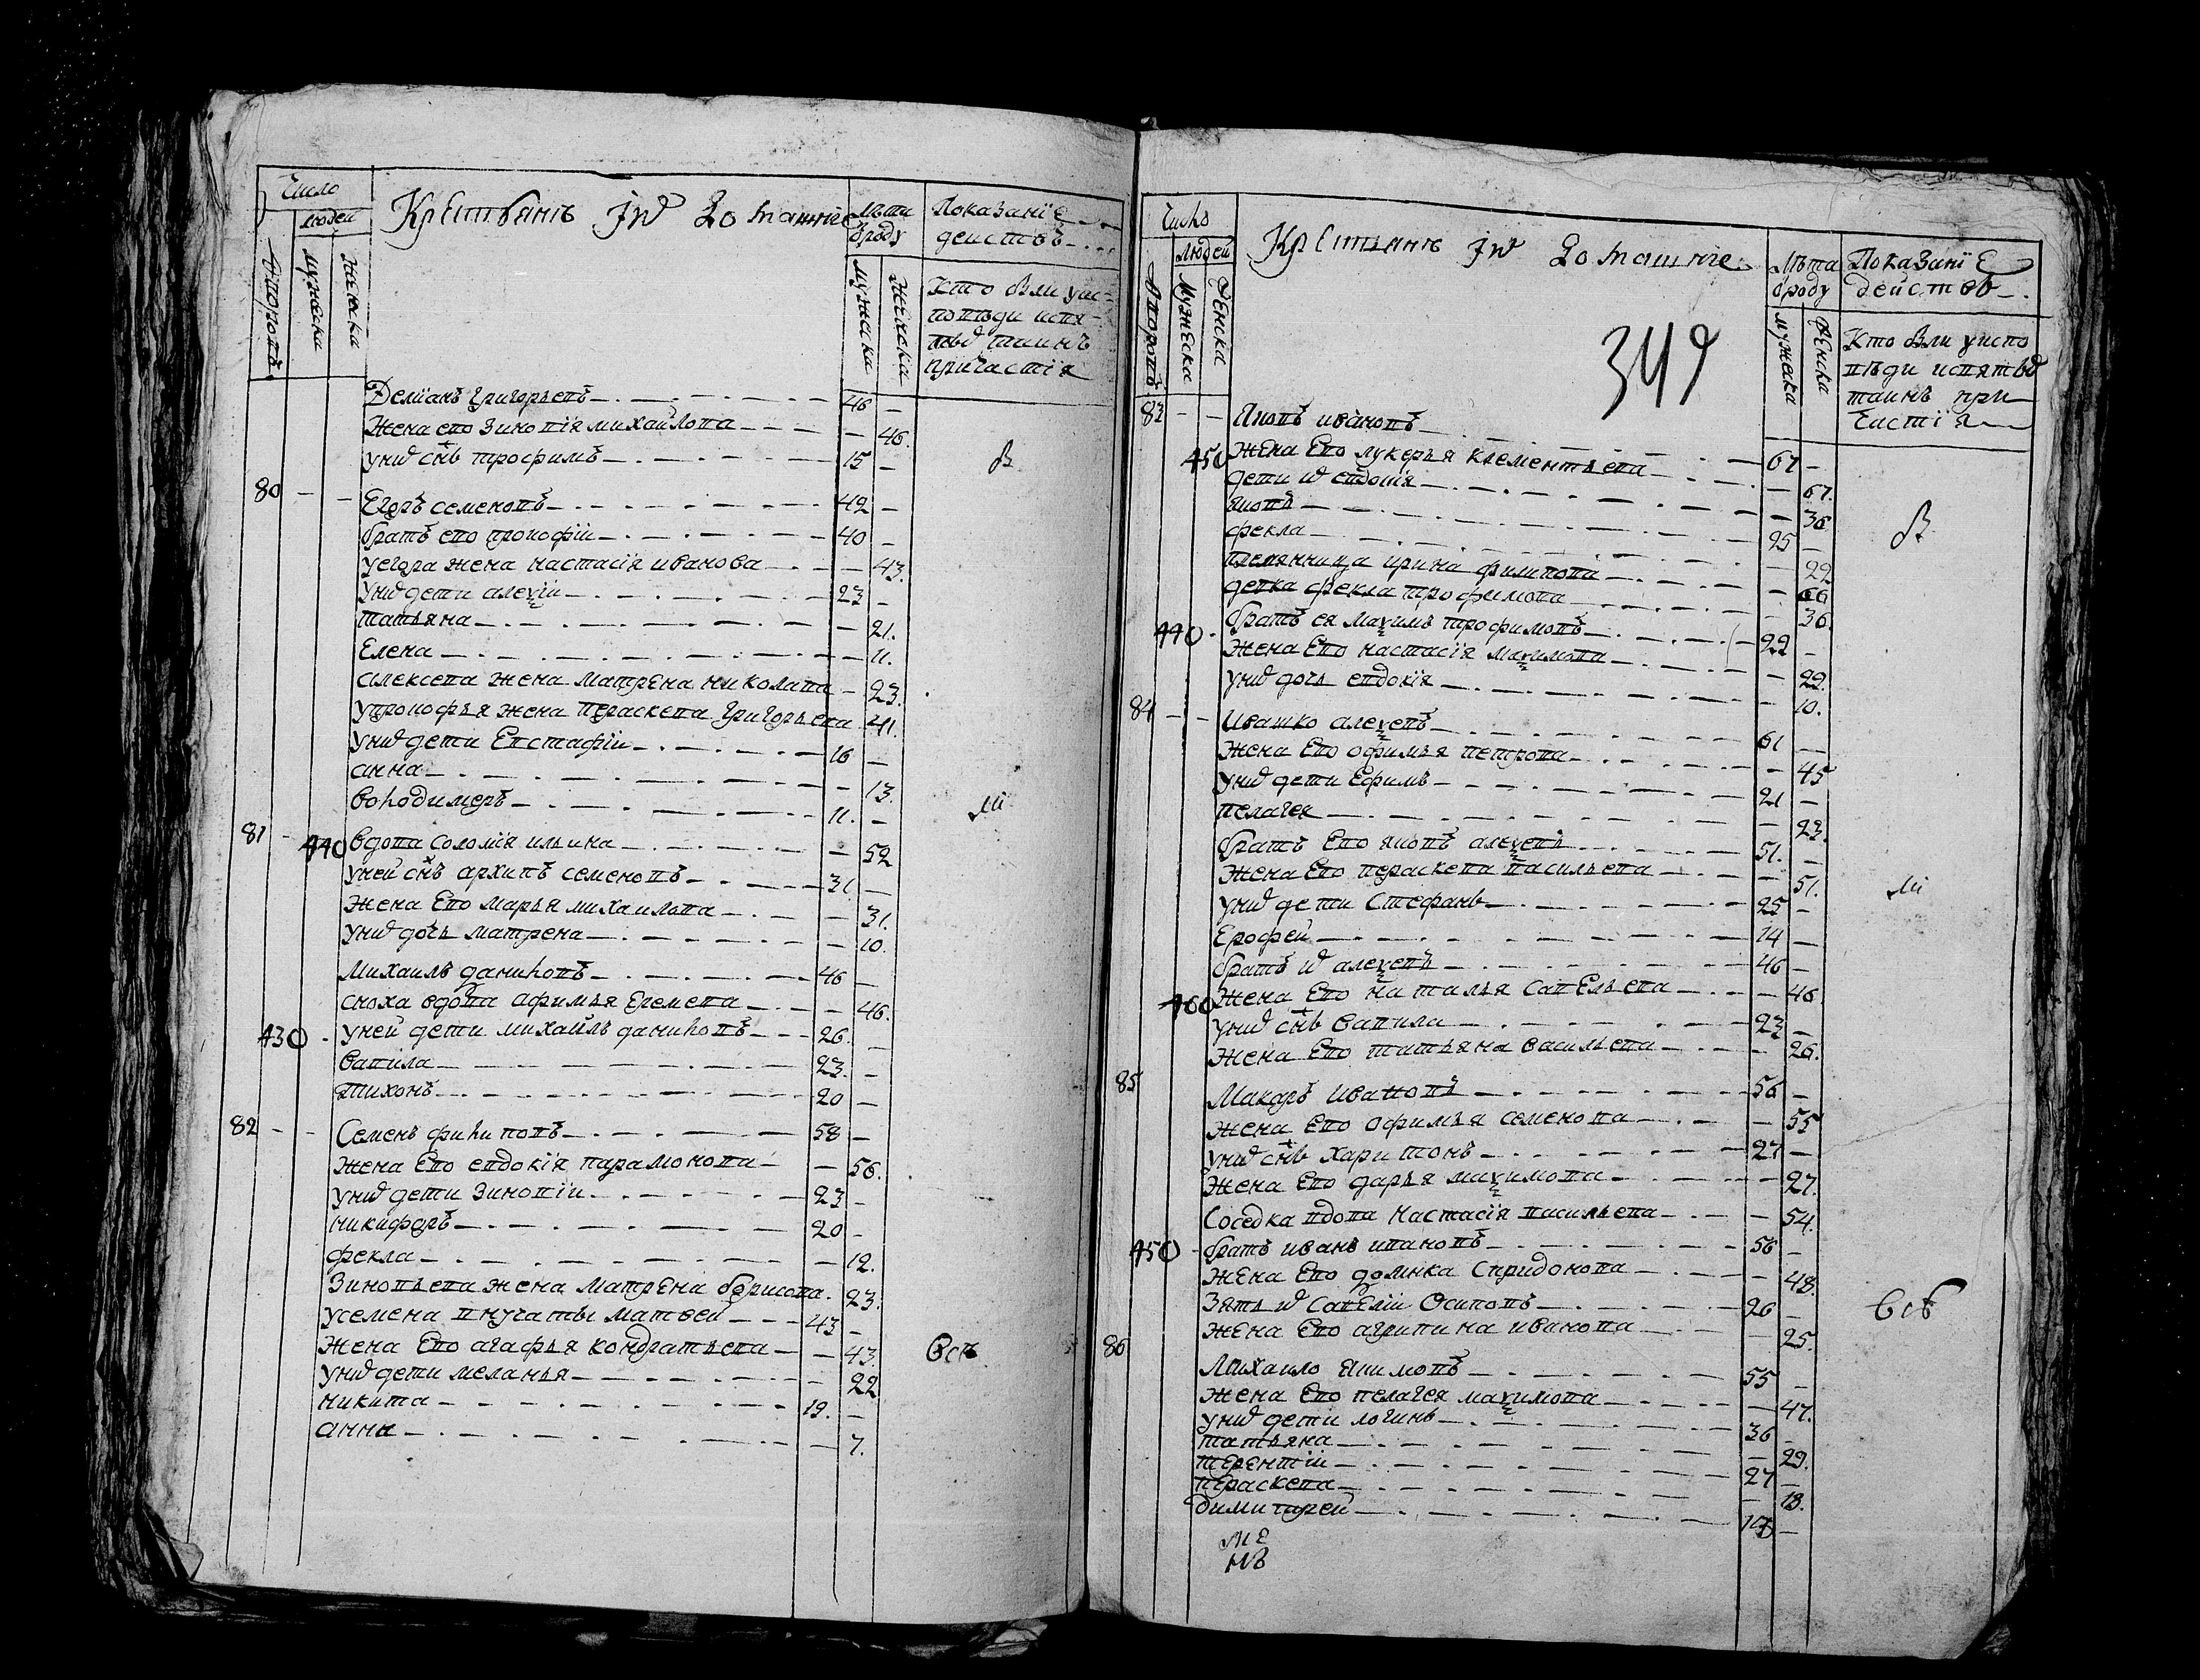 Число
людей
дворовъ
мужеска
женска
Крестьянъ и домашние
Лѣта
ѿроду
мужеска
женска
Показаніе
действъ
кто были уис
поведи испя
тыхъ таинъ
причастія
Демианъ григорьевъ 46
жена ево зиновія михаилова 46.
унихъ сн҃ъ трофимъ 15
В
80 Егоръ семеновъ 42
братъ ево прокофіи 40
уегора жена настасія иванова 43.
унихъ дети алеѯіи 23
татьяна 21.
Елена 11.
алексева жена матрена николаева 23.
упрокофья жена параскева григорьева 41.
унихъ дети Евстафіи 16
анна 13.
володимеръ 11.
ли
81 440 вдова соломія ильина 52
уней сн҃ъ архипъ семеновъ 31
жена Ево марья михаилова 31.
унихъ дочь матрена 10.
михаилъ даниловъ 46
сноха вдова афимья Еремева 46.
430 уней дети михаилъ даниловъ 26.
вавила 23.
тихонъ 20
82 Семенъ филиповъ 58
жена Ево евдокія парамонова 56.
унихъ дети зиновіи 23
никифоръ 20
фекла 12.
зиновьева жена матрена борисова 23.
усемена внучаты матвеи 43
жена Ево агафья кондратьева 43.
унихъ дети меланья 22
никита 19.
анна 7.
Всѣ
Число
людей
дворовъ
мужеска
женска
Крестьянъ и домашние
349
Лѣта
ѿроду
мужеска
женска
Показаніе
действъ
Кто были уиспо
вѣди испятыхъ
таинъ при
частія
83 Яковъ ивановъ 67
450 жена Ево лукерья клементьева 67.
дети их евдокія 36
яковъ 25
фекла 22
племянница ирина филипова 66
девка фекла трофимова 36.
В
440 братъ ея маѯимъ трофимовъ 22
жена Ево настасія маѯимова 22.
унихъ дочь евдокія 10.
84 ивашко алеѯевъ 61
жена Ево офимья петрова 45
унихъ дети Ефимъ 21
пелагея 23.
братъ Ево яковъ алеѯевъ 51.
жена Ево параскева васильева 51.
ли
унихъ дети Стефанъ 25
Ерофей 14
братъ их алеѯевъ 46
460 жена Ево наталья савельева 46.
унихъ сн҃ъ вавила 23
жена Ево татьяна васильева 26.
85 Макаръ ивановъ 56
жена Ево офимья семенова 55
унихъ сн҃ъ харитонъ 27
жена Ево дарья маѯимова 27.
соседка вдова настасія васильева 54.
450 братъ иванъ ивановъ 56
жена Ево домника спиридонова 48.
зять их савелій Осиповъ 26
жена Ево агрипина иванова 25.
Всѣ
86 Михаило Якимовъ 55
жена Ево пелагея маѯимова 47.
унихъ дети логинъ 36
татьяна 29.
терентіи 27
параскева 18.
димитрей 17
МЕ
НВ